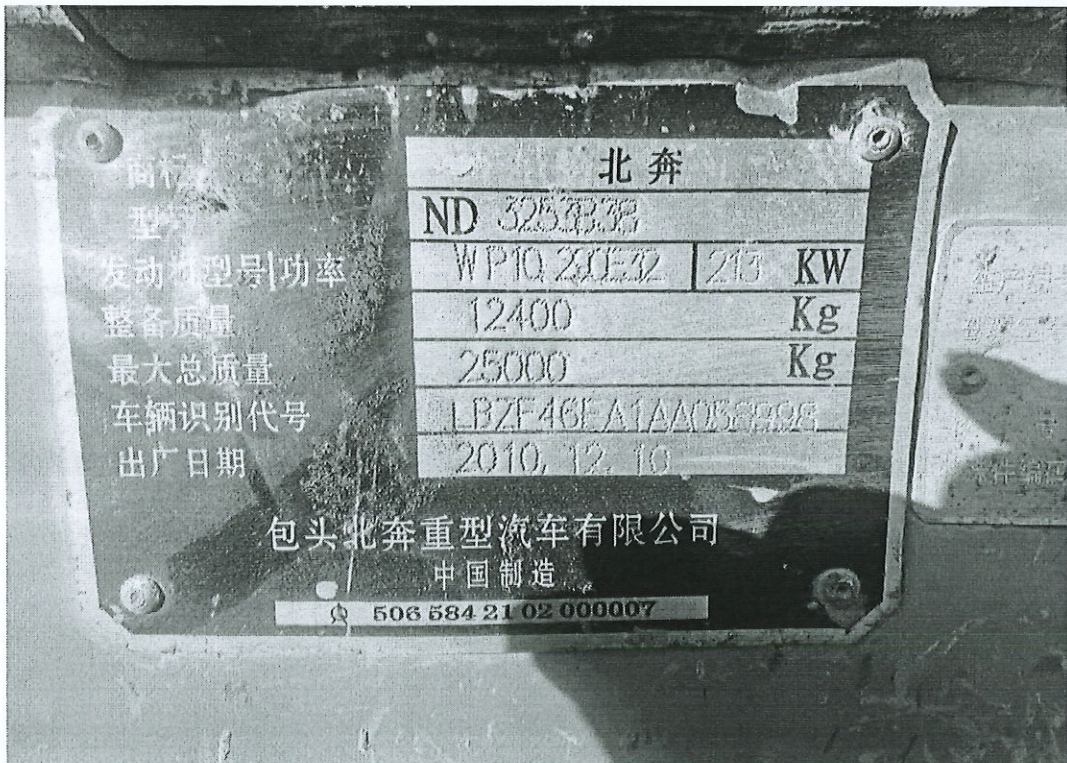 商标 北奔
型 ND 3253B38
发动 型号|功率 WP10. 213 KW
整备质量 12400 Kg
最大总质量 25000 Kg
车辆识别代号 LBZF46EA1AA058998
出厂日期 2010. 12. 10
包头北奔重型汽车有限公司
中国制造
506 584 21 02 000007